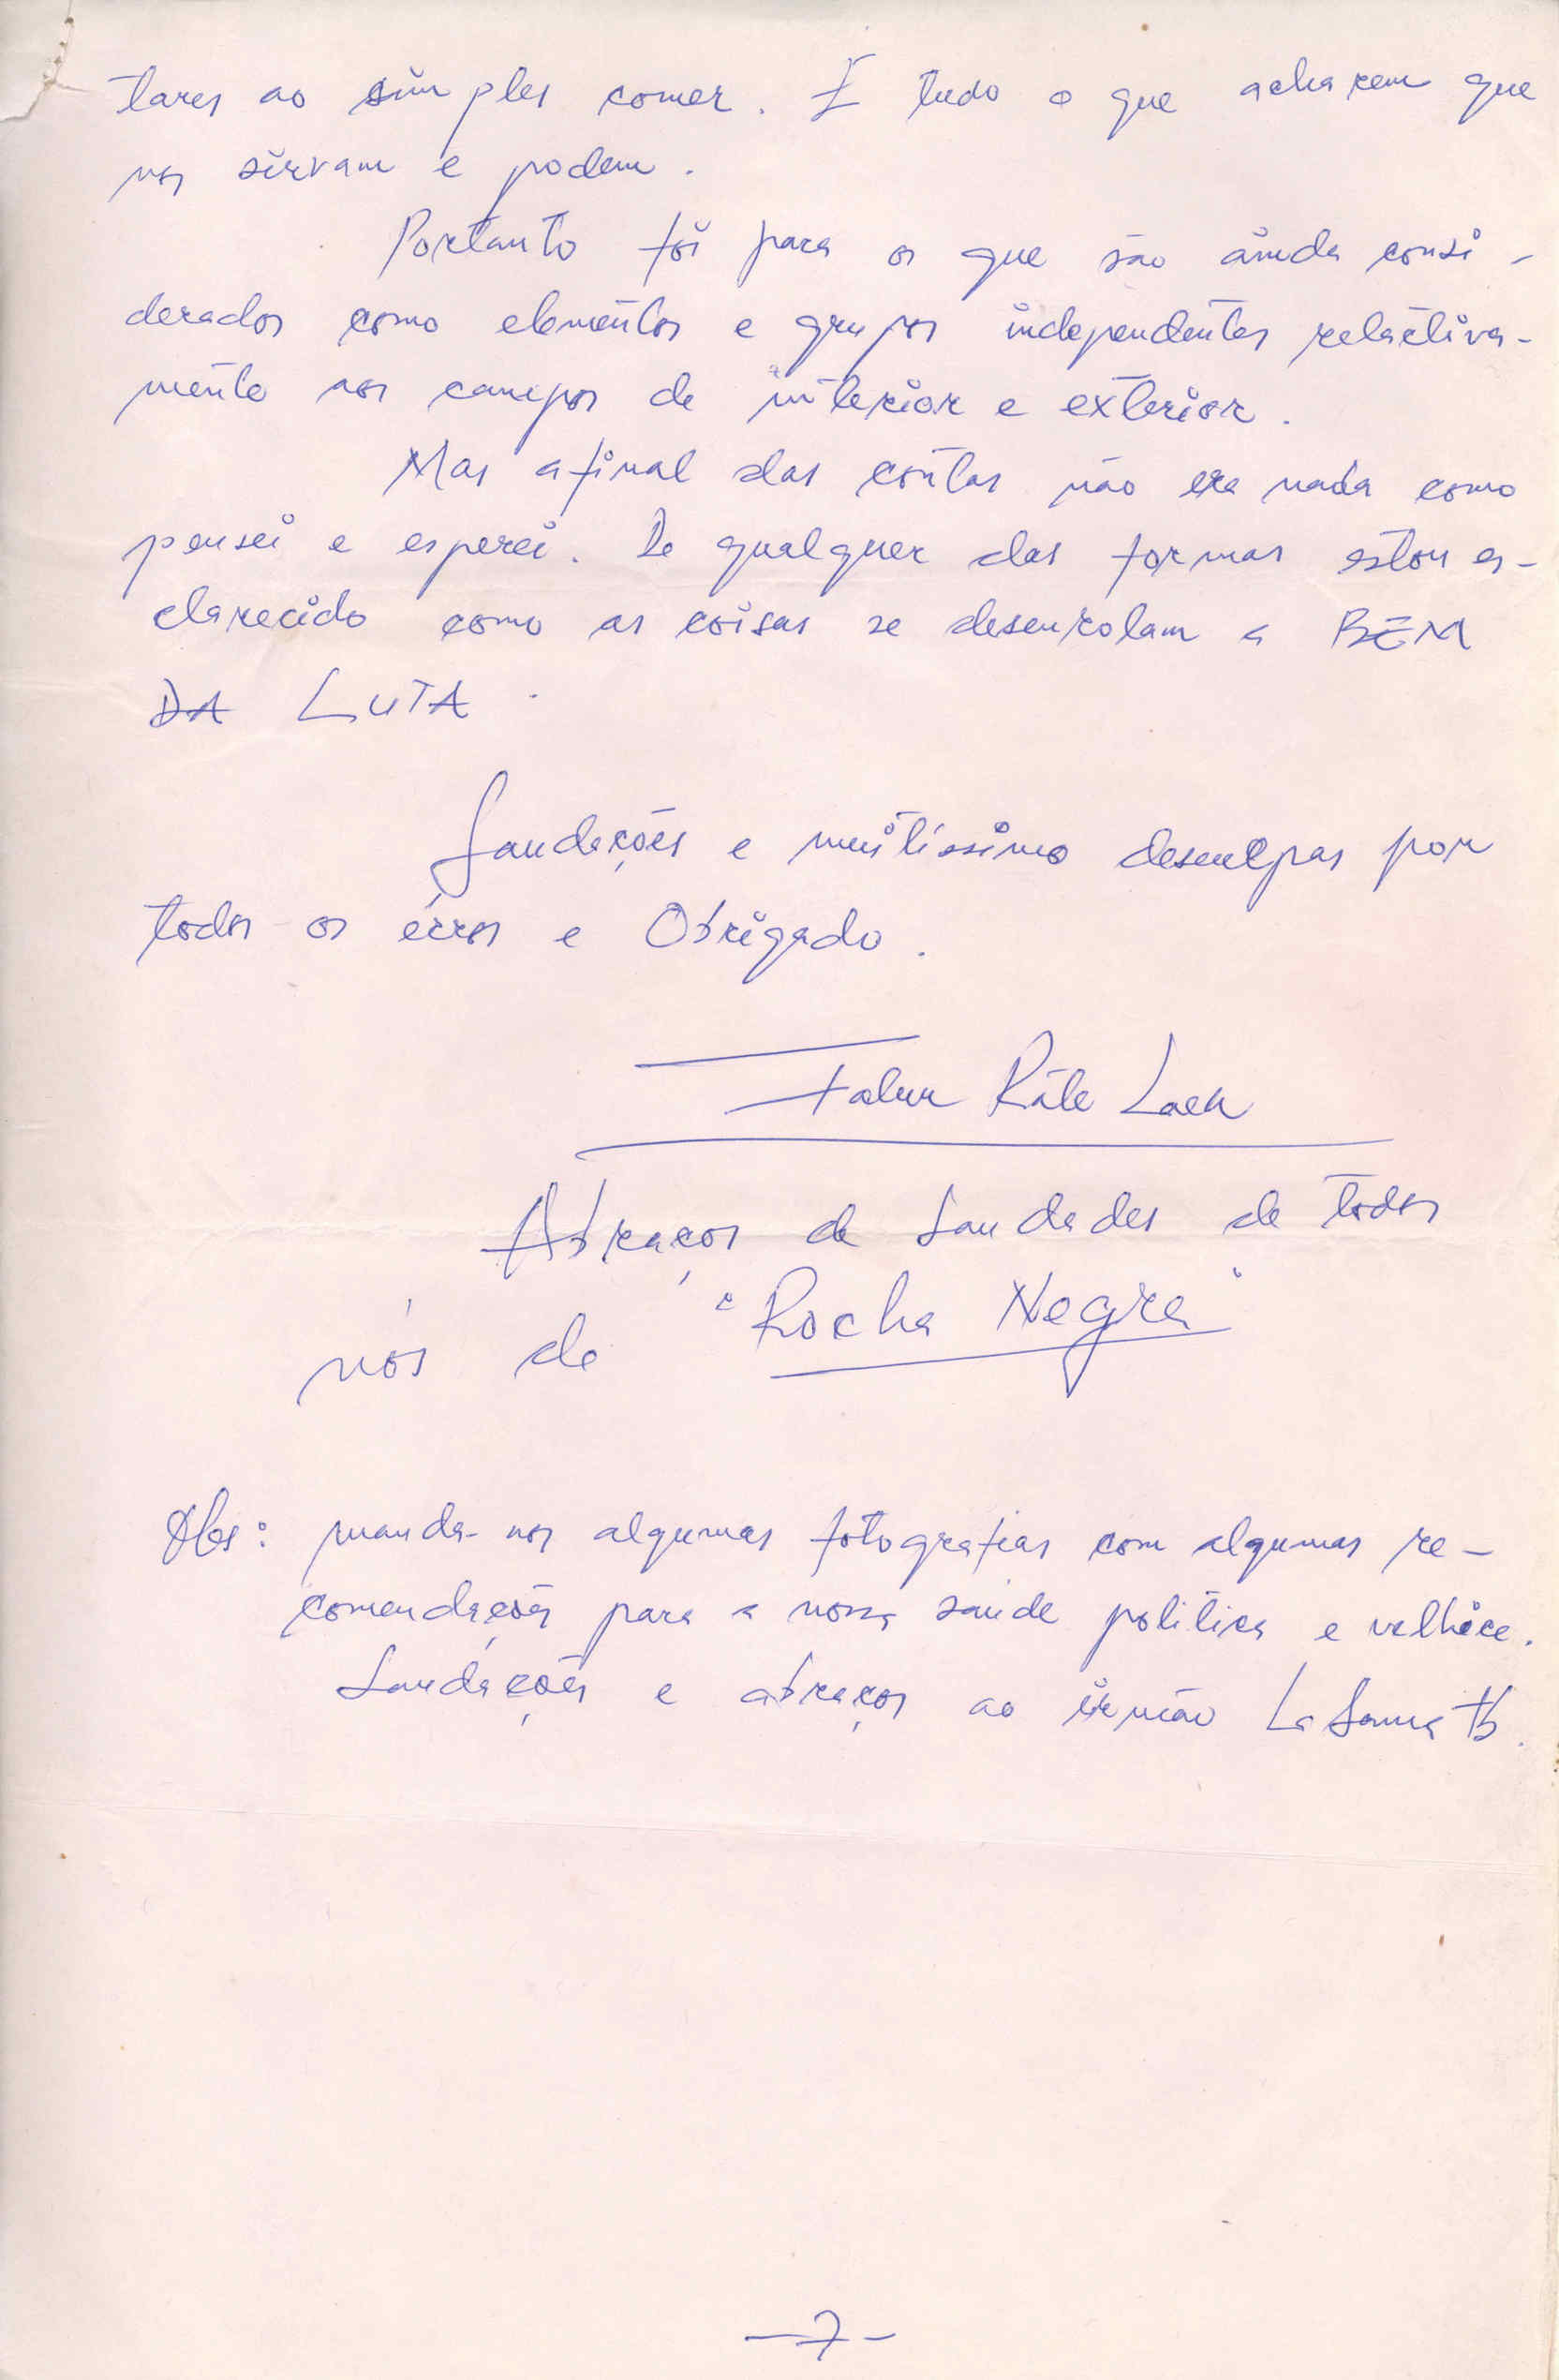 tares ao simples comer. E tudo o que acharem que
nos sirvam e podem.
Portanto foi para os que são ainda consi-
derados como elementos e grupos independentes relactiva-
mente nos campos de interior e exterior.
Mas afinal das contas não era nada como
pensei e esperei. De qualquer das formas estou es-
clarecido como as coisas se desenrolam a BEM
DA LUTA.
Saudações e muitíssimo desculpas por
todos os érros e Obrigado.
Falur Rate Laek
Abraços de Saudades de todos
nós de "Rocha Negra"
Obs: manda-nos algumas fotografias com algumas re-
comendações para a nossa saúde politica e velhice.
Saudações e abraços ao irmão La Sama
-7-